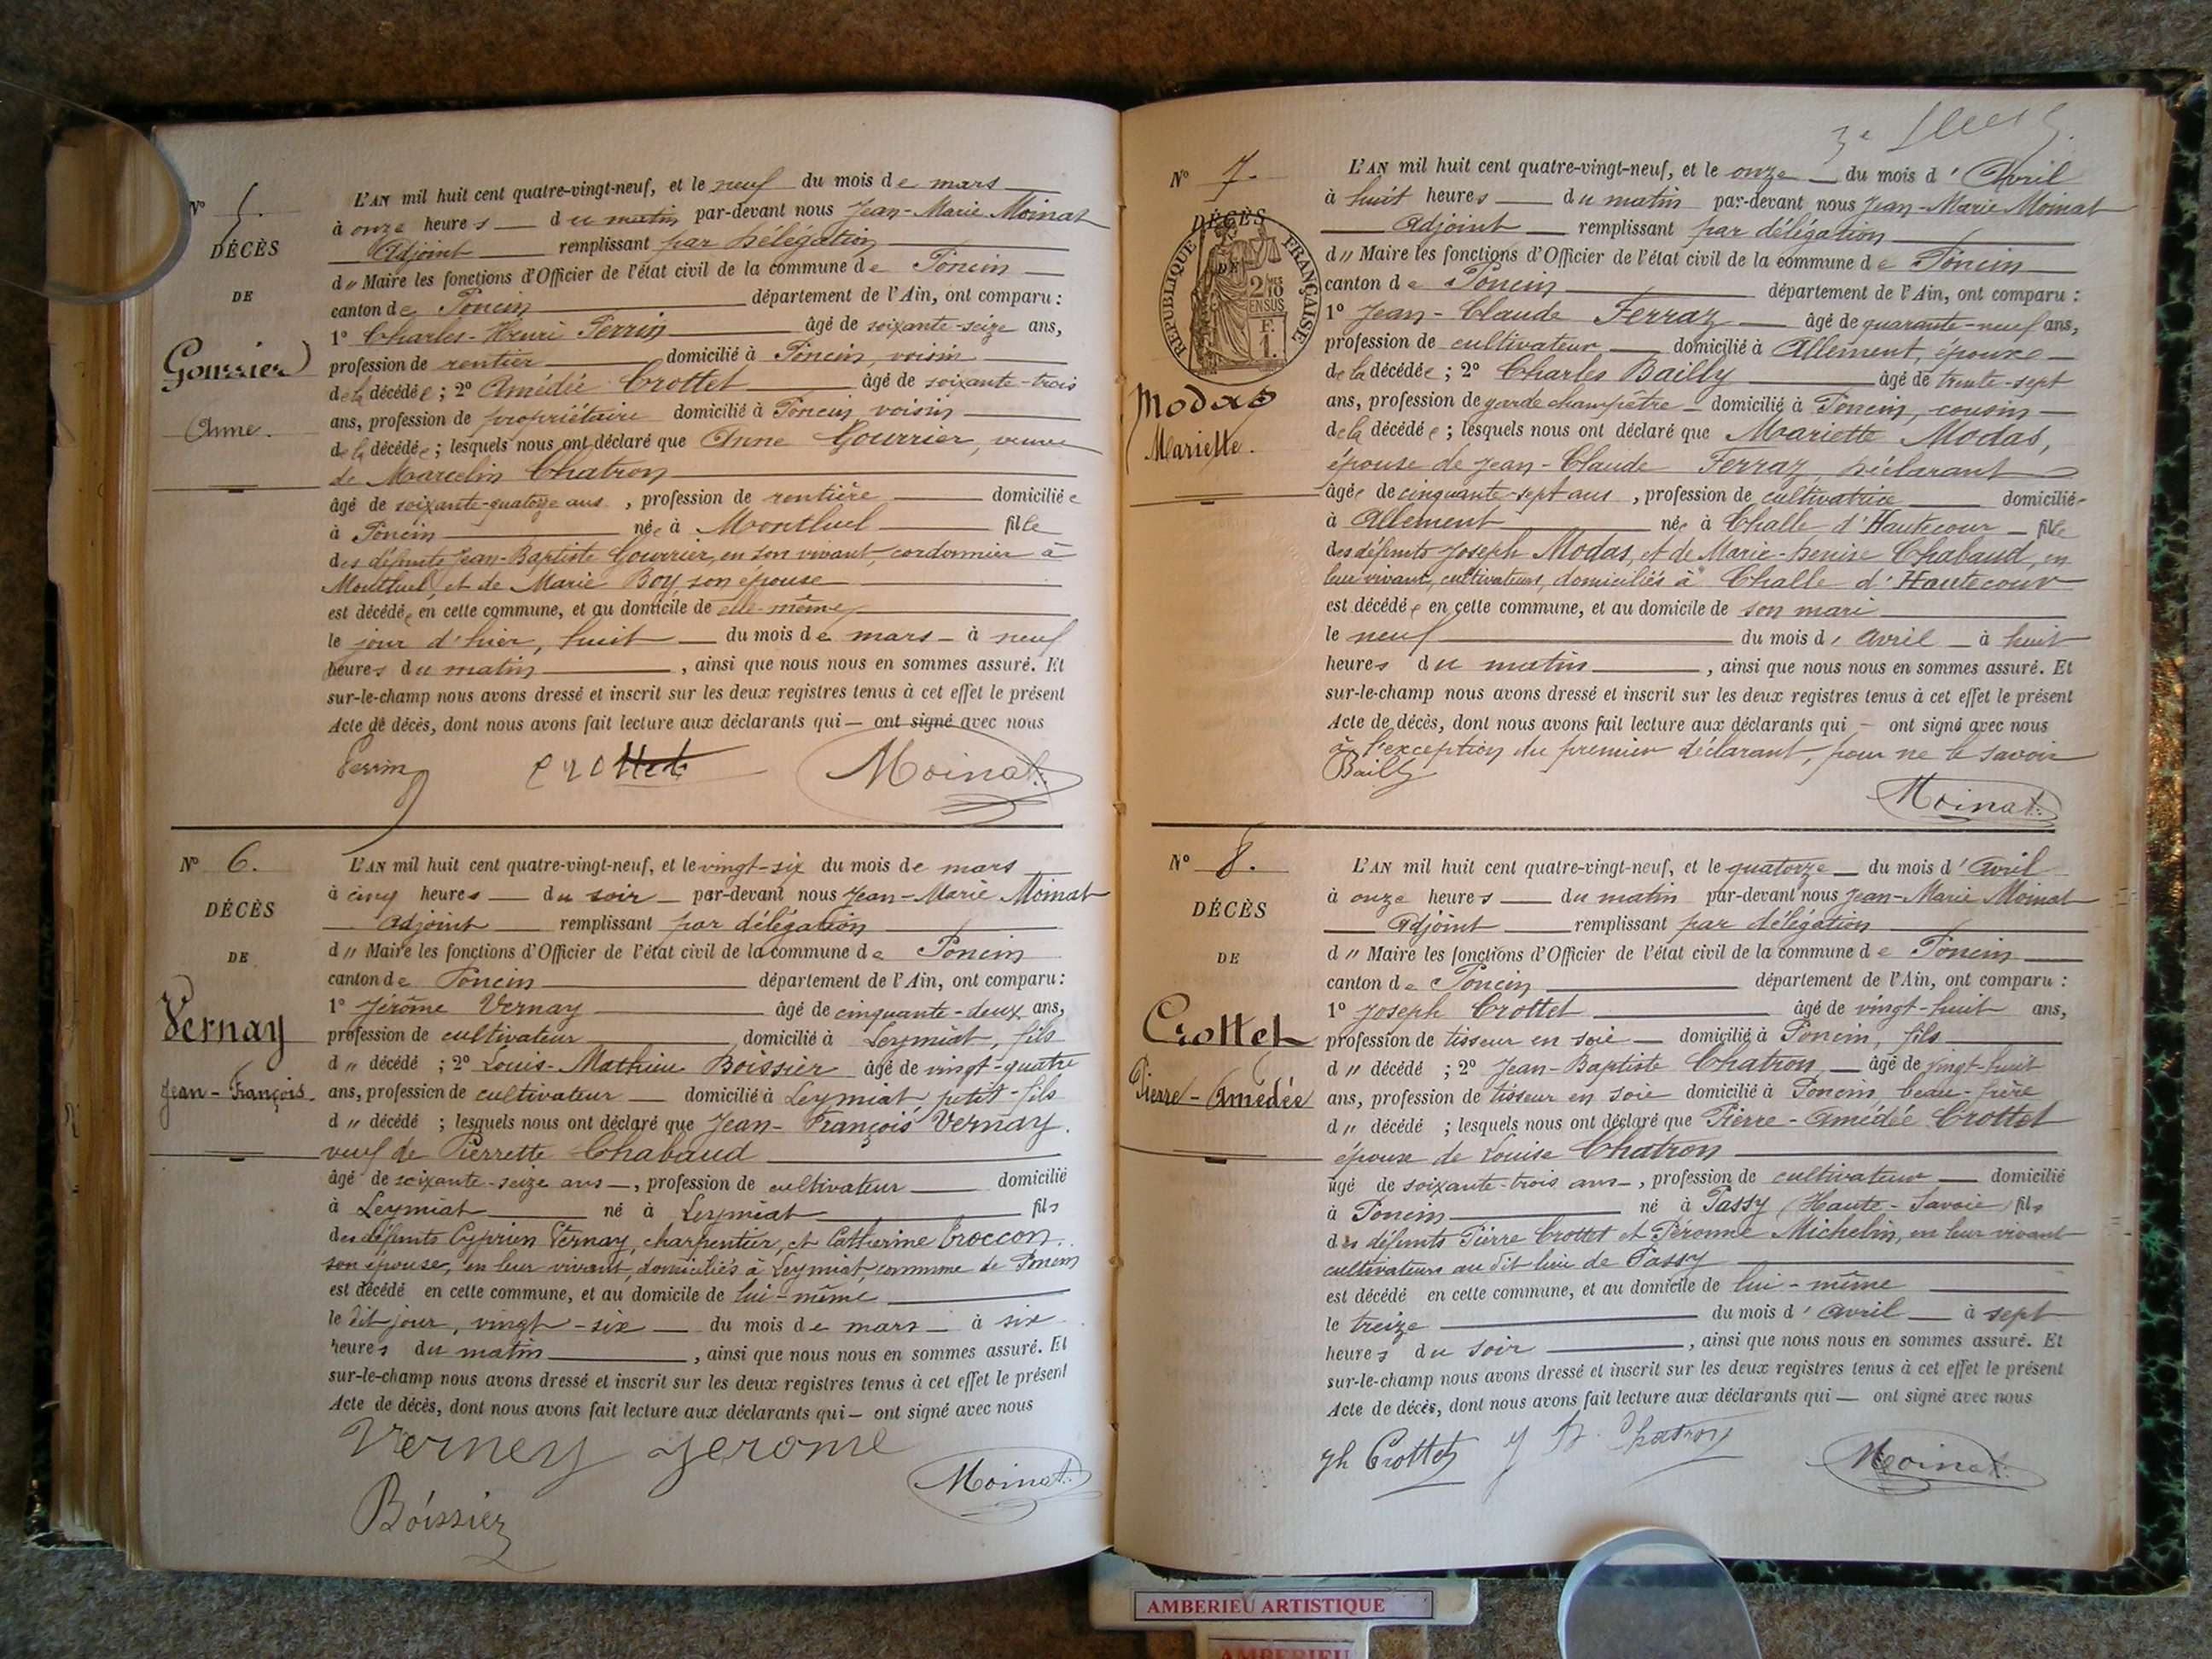 N° 5.
DÉCÈS
DE
Gourrier
Anne.
L'AN mil huit cent quatre-vingt-neuf, et le neuf du mois de mars
à onze heures du matin par-devant nous Jean-Marie Moinat
Adjoint remplissant par délégation
d" Maire les fonctions d'Officier de l'état civil de la commune de Poncin
canton de Poncin département de l'Ain, ont comparu :
1° Charles-Henri Perrin âgé de soixante-seize ans,
profession de rentier domicilié à Poncin, voisin
de la décédée ; 2° Amédée Crottet âgé de soixante-trois
ans, profession de propriétaire domicilié à Poncin, voisin
de la décédée ; lesquels nous ont déclaré que Anne Gourrier, veuve
de Marcelin Chatron
âgé de soixante-quatorze ans, profession de rentière domiciliée
à Poncin née à Montluel fille
des défunts Jean-Baptiste Gourrier, en son vivant, cordonnier à
Montluel, et de Marie Boy son épouse
est décédée en cette commune, et au domicile de elle-même
le jour d'hier, huit du mois de mars à neuf
heures du matin, ainsi que nous nous en sommes assuré. Et
sur-le-champ nous avons dressé et inscrit sur les deux registres tenus à cet effet le présent
Acte de décès, dont nous avons fait lecture aux déclarants qui — ont signé avec nous
Perrin Crottet Moinat
N° 6.
DÉCÈS
DE
Vernay
Jean-François.
L'AN mil huit cent quatre-vingt-neuf, et le vingt-six du mois de mars
à cinq heures du soir par-devant nous Jean-Marie Moinat
Adjoint remplissant par délégation
d" Maire les fonctions d'Officier de l'état civil de la commune de Poncin
canton de Poncin département de l'Ain, ont comparu :
1° Jérôme Vernay âgé de cinquante-deux ans,
profession de cultivateur domicilié à Leymiat, fils
d" décédé ; 2° Louis-Mathieu Boissier âgé de vingt-quatre
ans, profession de cultivateur domicilié à Leymiat, petit-fils
d" décédé ; lesquels nous ont déclaré que Jean-François Vernay.
veuf de Pierrette Chabaud
âgé de soixante-seize ans, profession de cultivateur domicilié
à Leymiat né à Leymiat fils
des défunts Cyprien Vernay, charpentier, et Catherine Croccon.
son épouse, en leur vivant, domiciliés à Leymiat, commune de Poncin
est décédé en cette commune, et au domicile de lui-même
le dit jour, vingt-six du mois de mars à six
heures du matin, ainsi que nous nous en sommes assuré. Et
sur-le-champ nous avons dressé et inscrit sur les deux registres tenus à cet effet le présent
Acte de décès, dont nous avons fait lecture aux déclarants qui — ont signé avec nous
Verney Jerome
Moinat
Boissier
3e
N° 7.
DÉCÈS
DE
RÉPUBLIQUE FRANÇAISE
2/10 EN SUS
F. 1.
Modas
Mariette.
L'AN mil huit cent quatre-vingt-neuf, et le onze du mois d'Avril
à huit heures du matin par-devant nous Jean-Marie Moinat
Adjoint remplissant par délégation
d" Maire les fonctions d'Officier de l'état civil de la commune de Poncin
canton de Poncin département de l'Ain, ont comparu :
1° Jean-Claude Ferraz âgé de quarante-neuf ans,
profession de cultivateur domicilié à Allement, époux
de la décédée ; 2° Charles Bailly âgé de trente-sept
ans, profession de garde champêtre domicilié à Poncin, cousin
de la décédée ; lesquels nous ont déclaré que Mariette Modas,
épouse de Jean-Claude Ferraz, déclarant
âgée de cinquante-sept ans, profession de cultivatrice domiciliée
à Allement née à Challe d'Hautecour fille
des défunts Joseph Modas, et de Marie-Denise Chabaud, en
leur vivant, cultivateurs, domiciliés à Challe d'Hautecour
est décédée en cette commune, et au domicile de son mari
le neuf du mois d'avril à huit
heures du matin, ainsi que nous nous en sommes assuré. Et
sur-le-champ nous avons dressé et inscrit sur les deux registres tenus à cet effet le présent
Acte de décès, dont nous avons fait lecture aux déclarants qui — ont signé avec nous
à l'exception du premier déclarant, pour ne le savoir
Bailly
Moinat
N° 8.
DÉCÈS
DE
Crottet
Pierre-Amédée
L'AN mil huit cent quatre-vingt-neuf, et le quatorze du mois d'Avril
à onze heures du matin par-devant nous Jean-Marie Moinat
Adjoint remplissant par délégation
d" Maire les fonctions d'Officier de l'état civil de la commune de Poncin
canton de Poncin département de l'Ain, ont comparu :
1° Joseph Crottet âgé de vingt-huit ans,
profession de tisseur en soie domicilié à Poncin, fils
d" décédé ; 2° Jean-Baptiste Chatron âgé de vingt-huit
ans, profession de tisseur en soie domicilié à Poncin, beau-frère
d" décédé ; lesquels nous ont déclaré que Pierre-Amédée Crottet
époux de Louise Chatron
âgé de soixante-trois ans, profession de cultivateur domicilié
à Poncin né à Passy (Haute-Savoie) fils
des défunts Pierre Crottet et Péronne Michelin, en leur vivant
cultivateurs au dit lieu de Passy
est décédé en cette commune, et au domicile de lui-même
le treize du mois d'avril à sept
heures du soir, ainsi que nous nous en sommes assuré. Et
sur-le-champ nous avons dressé et inscrit sur les deux registres tenus à cet effet le présent
Acte de décès, dont nous avons fait lecture aux déclarants qui — ont signé avec nous
Jh Crottet J B. Chatron Moinat
AMBERIEU ARTISTIQUE
AMBERIEU